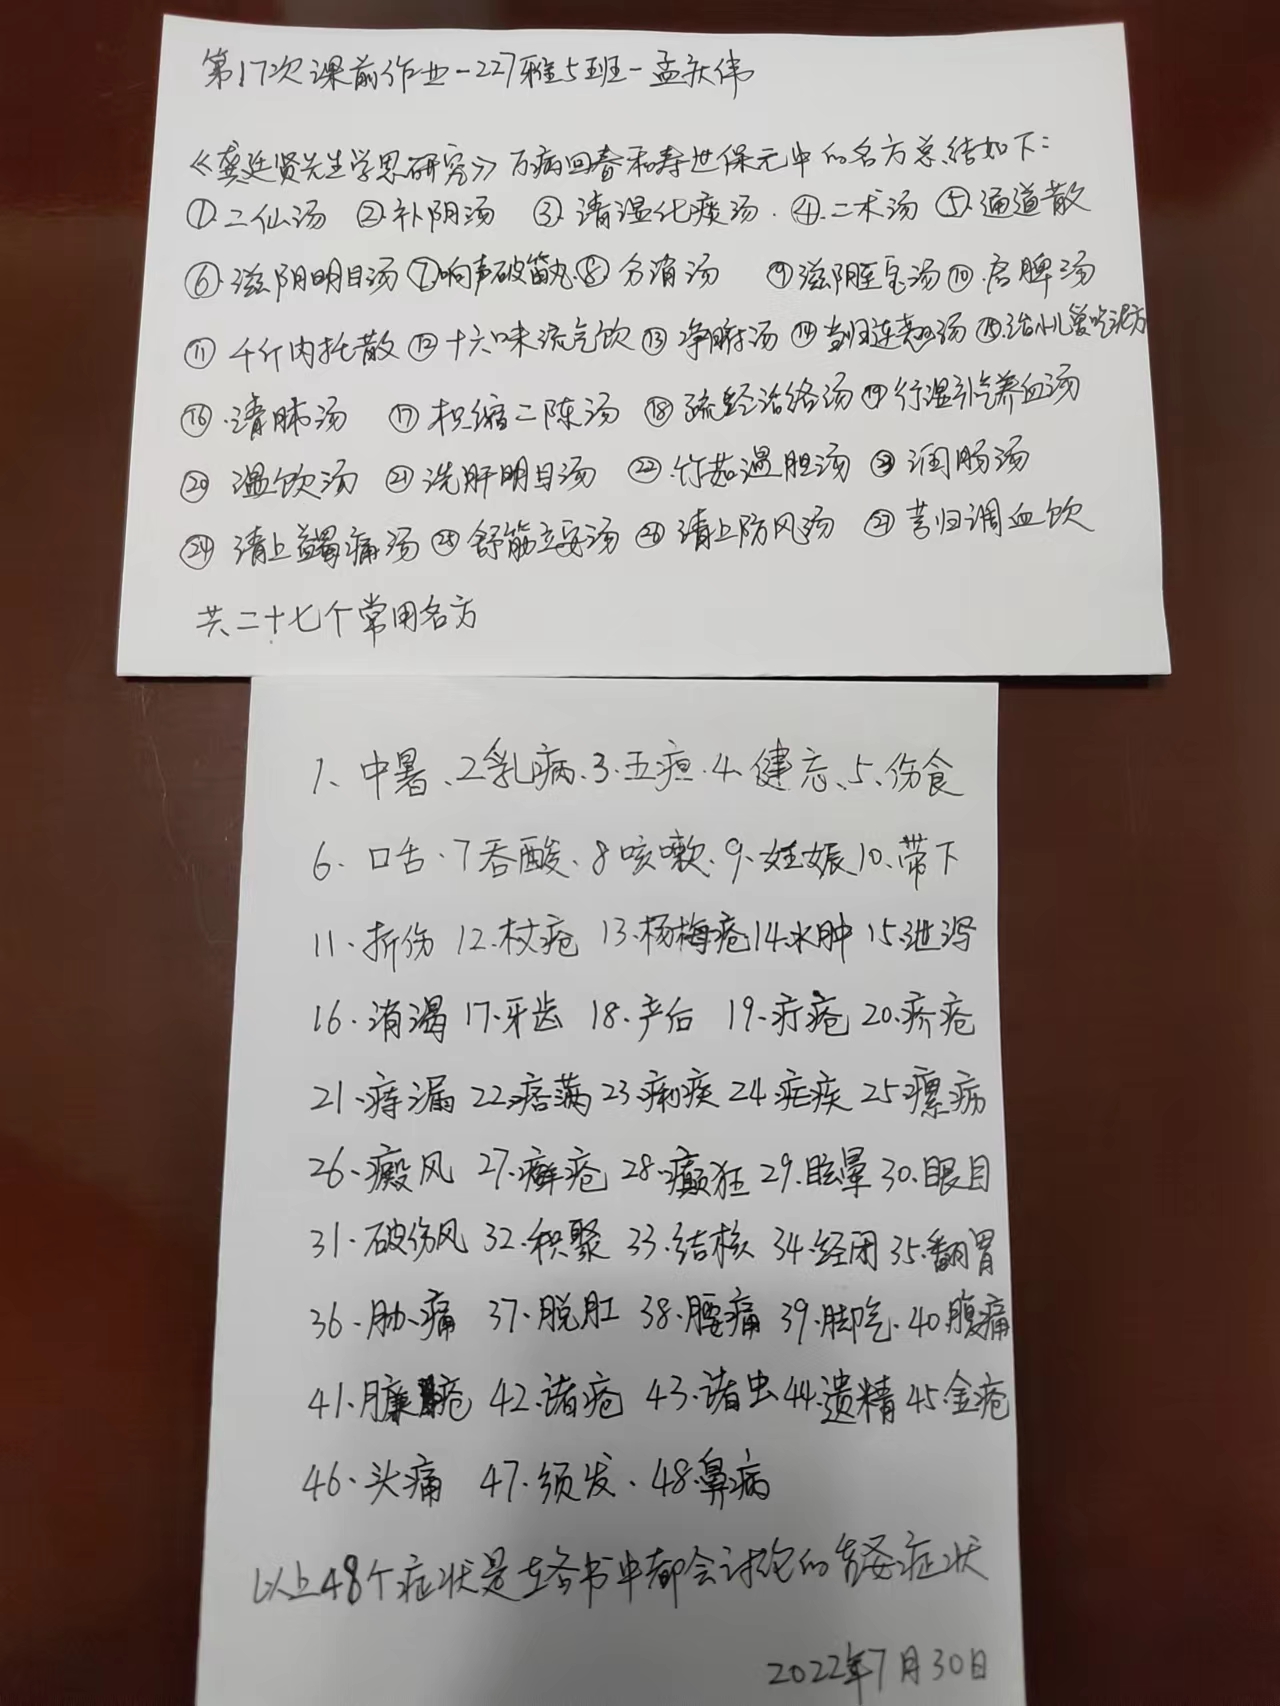 第17次课前作业-227雅5班-孟庆伟
《龚廷贤先生学思研究》万病回春和寿世保元中的名方总结如下:
①.二仙汤 ②.补阴汤 ③.清湿化痰汤.④.二术汤 ⑤.通道散
⑥.滋阴明目汤⑦.响声破笛丸⑧.分消汤 ⑨.滋阴至宝汤⑩.启脾汤
⑪千斤内托散⑫十六味流气饮⑬净腑汤⑭当归连翘汤⑮.治小儿爱吃泥方
⑯.清肺汤 ⑰枳缩二陈汤 ⑱疏经活络汤⑲行湿引气养血汤
⑳温饮汤 ㉑洗肝明目汤 ㉒.竹茹温胆汤 ㉓润肠汤
㉔清上蠲痛汤㉕舒筋立安汤㉖清上防风汤 ㉗芎归调血饮
共二十七个常用名方
1、中暑、2乳病、3.五疸.4、健忘、5、伤食
6.口舌.7吞酸、8咳嗽、9、妊娠10、带下
11.折伤 12.杖疮 13.杨梅疮14.水肿 15.泄泻
16.消渴 17.牙齿 18.产后 19.疔疮 20.疥疮
21.痔漏 22.痞满 23.痢疾 24.疟疾 25.瘰疬
26.癜风 27.癣疮 28.癫狂 29.眩晕 30.眼目
31.破伤风 32.积聚 33.结核 34.经闭 35.翻胃
36.胁痛 37.脱肛 38.腰痛 39.脚气.40腹痛
41.臁疮 42.诸疮 43.诸虫44.遗精 45.金疮
46.头痛 47.须发、48.鼻病
以上48个症状是在各书中都会讨论的症状
2022年7月30日